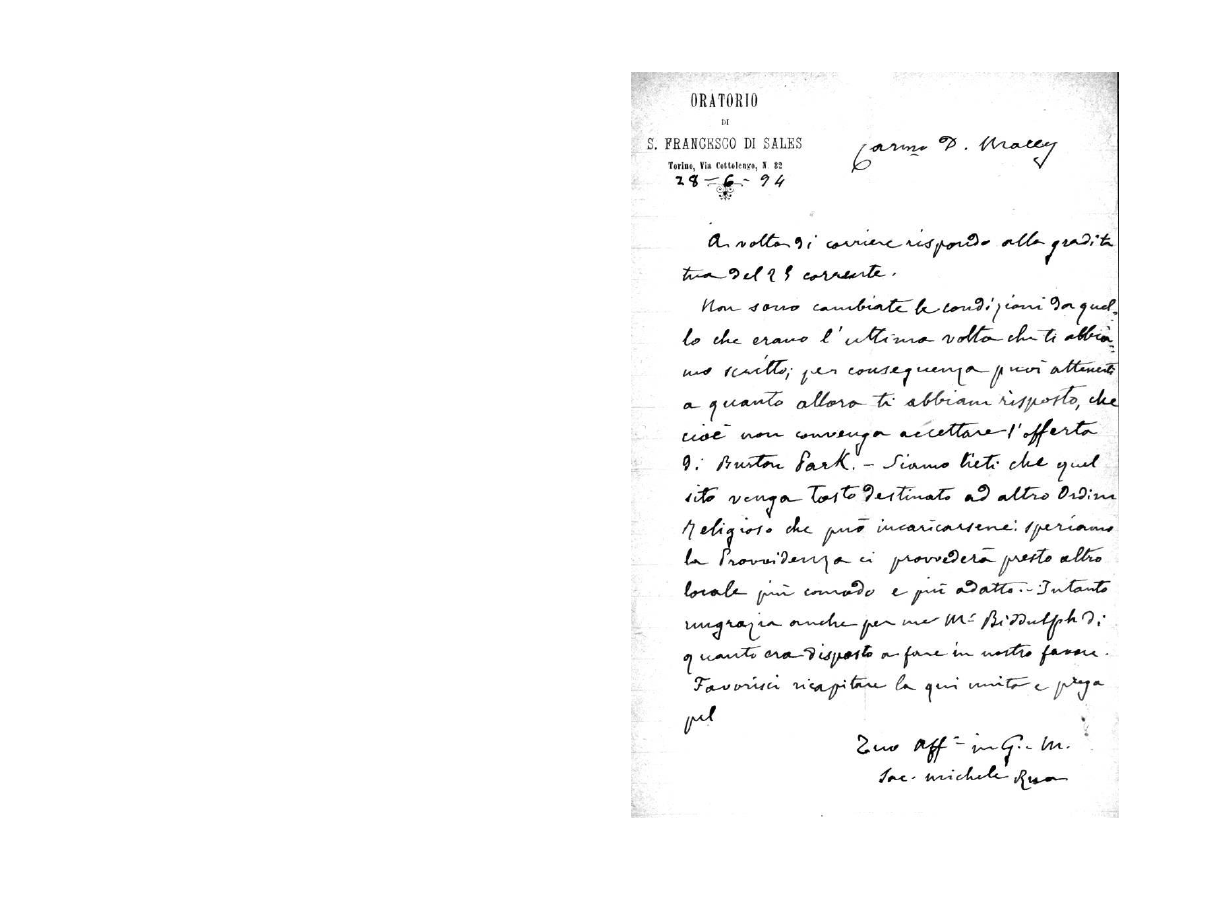 ORATORIO
DI
S. FRANCESCO DI SALES
Torino, Via Cottolengo, N. 32
28-6-94
Carmo D. Macey
A volta di corriere rispondo alla gradita
tua del 25 corrente.
Non sono cambiate le condizioni da quel-
lo che erano l'ultima volta che ti abbia-
mo scritto; per conseguenza puoi attenerti
a quanto allora ti abbiam risposto, che
cioè non convenga accettare l'offerta
di Burton Park. - Siamo lieti che quel
sito venga tosto destinato ad altro Ordine
Religioso che può incaricarsene: speriamo
la Provvidenza ci provvederà presto altro
locale più comodo e più adatto. - Intanto
ringrazia anche per me Mr Biddulph di
quanto era disposto a fare in nostro favore.
Favorisci ricapitare la qui unita e prega
pel
Tuo aff in G. M.
Sac. Michele Rua